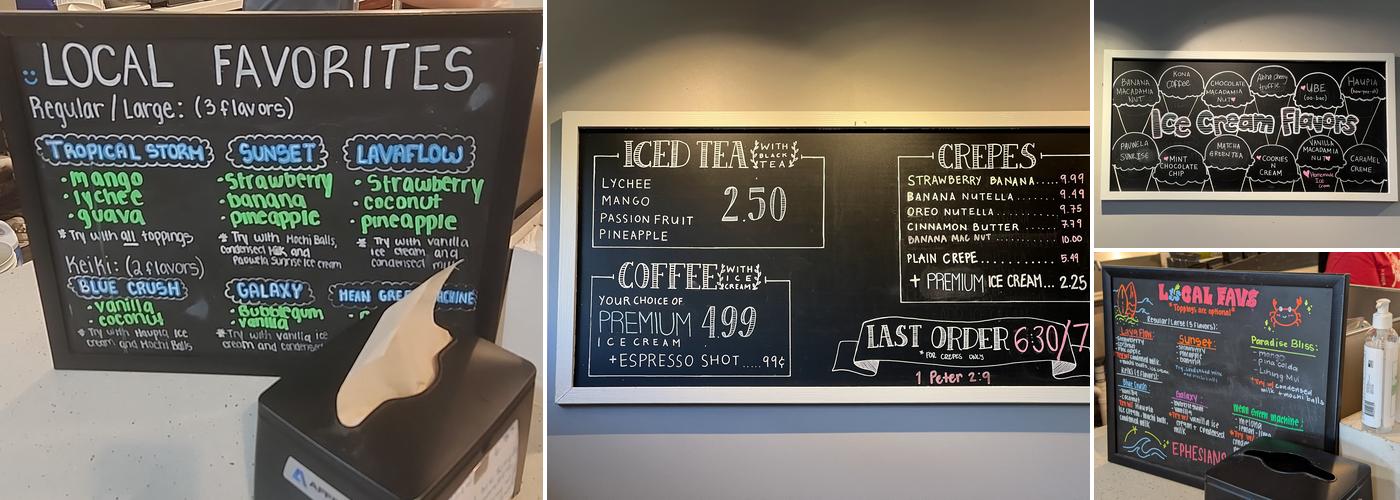 LOCAL FAVORITES
Regular / Large: (3 flavors)
TROPICAL STORM
• mango
• lychee
• guava
* Try with all toppings
SUNSET
• Strawberry
• banana
• pineapple
* Try with Mochi Balls,
condensed milk and
Pauwela Sunrise Ice cream
LAVAFLOW
• Strawberry
• coconut
• pineapple
* Try with vanilla
ice cream and
condensed milk
Keiki: (2 flavors)
BLUE CRUSH
• vanilla
• coconut
* Try with Haupia Ice
cream and Mochi Balls
GALAXY
• Bubblegum
vanilla
* Try with vanilla ice
cream and condensed
MEAN GREEN MACHINE
ICED TEA WITH BLACK TEA
LYCHEE
MANGO
PASSION FRUIT
PINEAPPLE
2.50
COFFEE WITH ICE CREAM
YOUR CHOICE OF
PREMIUM 4.99
ICE CREAM
+ESPRESSO SHOT .....99¢
CREPES
STRAWBERRY BANANA....9.99
BANANA NUTELLA..........9.49
OREO NUTELLA............9.75
CINNAMON BUTTER........7.79
BANANA MAC NUT..........10.00
PLAIN CREPE..............5.49
+ PREMIUM ICE CREAM... 2.25
LAST ORDER 6:30/7
*FOR CREPES ONLY
1 Peter 2:9
BANANA
MACADAMIA
NUT
KONA
COFFEE
CHOCOLATE
MACADAMIA
NUT
truffle
UBE
(oo-bae)
HAUPIA
Ice Cream Flavors
PAUWELA
SUNRISE
MINT
CHOCOLATE
CHIP
MATCHA
GREEN TEA
COOKIES
N
CREAM
VANILLA
MACADAMIA
NUT
Homemade
Ice
Cream
CARAMEL
CREME
LOCAL FAVS
*Toppings are optional*
Regular/Large (3 flavors):
Lava Flow:
Sunset:
- strawberry
- pineapple
- banana
Paradise Bliss:
- mango
- pina colda
- Li Hing Mui
*Try w/ condensed
milk + mochi balls
Keiki (2 flavors):
Blue Crush:
Galaxy:
- vanilla
Mean Green Machine:
- melona
- lemon-lime
EPHESIANS